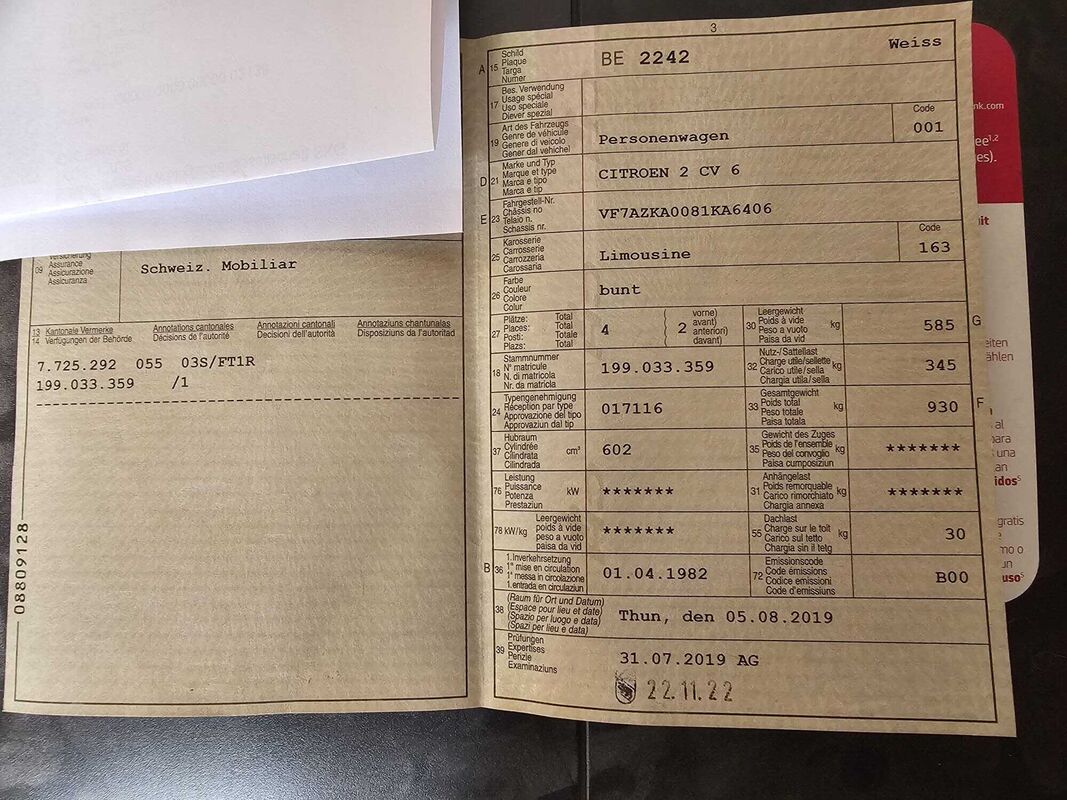 Versicherung
09 Assurance
Assicurazione
Assicuranza
Schweiz. Mobiliar
13 Kantonale Vermerke Annotations cantonales Annotazioni cantonali Annotaziuns chantunalas
14 Verfügungen der Behörde Décisions de l'autorité Decisioni dell'autorità Disposiziuns da l'autoritad
7.725.292 055 03S/FT1R
199.033.359 /1
08809128
3
A 15 Schild
Plaque
Targa
Numer
BE 2242 Weiss
17 Bes. Verwendung
Usage spécial
Uso speciale
Diever spezial
19 Art des Fahrzeugs
Genre de véhicule
Genere di veicolo
Gener dal vehichel
Personenwagen
Code
001
D 21 Marke und Typ
Marque et type
Marca e tipo
Marca e tip
CITROEN 2 CV 6
E 23 Fahrgestell-Nr.
Châssis no
Telaio n.
Schassis nr.
VF7AZKA0081KA6406
25 Karosserie
Carrosserie
Carrozzeria
Carossaria
Limousine
Code
163
26 Farbe
Couleur
Colore
Colur
bunt
27 Plätze: Total
Places: Total
Posti: Totale
Plazs: Total
4
( 2 vorne)
avant)
( anteriori)
davant)
30 Leergewicht
Poids à vide
Peso a vuoto
Paisa da vid
kg
585
G
18 Stammnummer
N° matricule
N. di matricola
Nr. da matricla
199.033.359
32 Nutz-/Sattellast
Charge utile/sellette
Carico utile/sella
Chargia utila/sella
kg
345
24 Typengenehmigung
Réception par type
Approvazione del tipo
Approvaziun dal tip
017116
33 Gesamtgewicht
Poids total
Peso totale
Paisa totala
kg
930
F
37 Hubraum
Cylindrée
Cilindrata
Cilindrada
cm³
602
35 Gewicht des Zuges
Poids de l'ensemble
Peso del convoglio
Paisa cumposiziun
kg
*******
76 Leistung
Puissance
Potenza
Prestaziun
kW
*******
31 Anhängelast
Poids remorquable
Carico rimorchiato
Chargia annexa
kg
*******
78 kW/kg Leergewicht
poids à vide
peso a vuoto
paisa da vid
*******
55 Dachlast
Charge sur le toit
Carico sul tetto
Chargia sin il tetg
kg
30
B 36 1.Inverkehrsetzung
1re mise en circulation
1a messa in circolazione
1.entrada en circulaziun
01.04.1982
72 Emissionscode
Code émissions
Codice emissioni
Code d'emissiuns
B00
38 (Raum für Ort und Datum)
(Espace pour lieu et date)
(Spazio per luogo e data)
(Spazi per lieu e data)
Thun, den 05.08.2019
39 Prüfungen
Expertises
Perizie
Examinaziuns
31.07.2019 AG
22.11.22
nk.com
ee1,2
es).
it
eiten
ählen
al
para
una
an
idos5
gratis
mo o
un
uso5